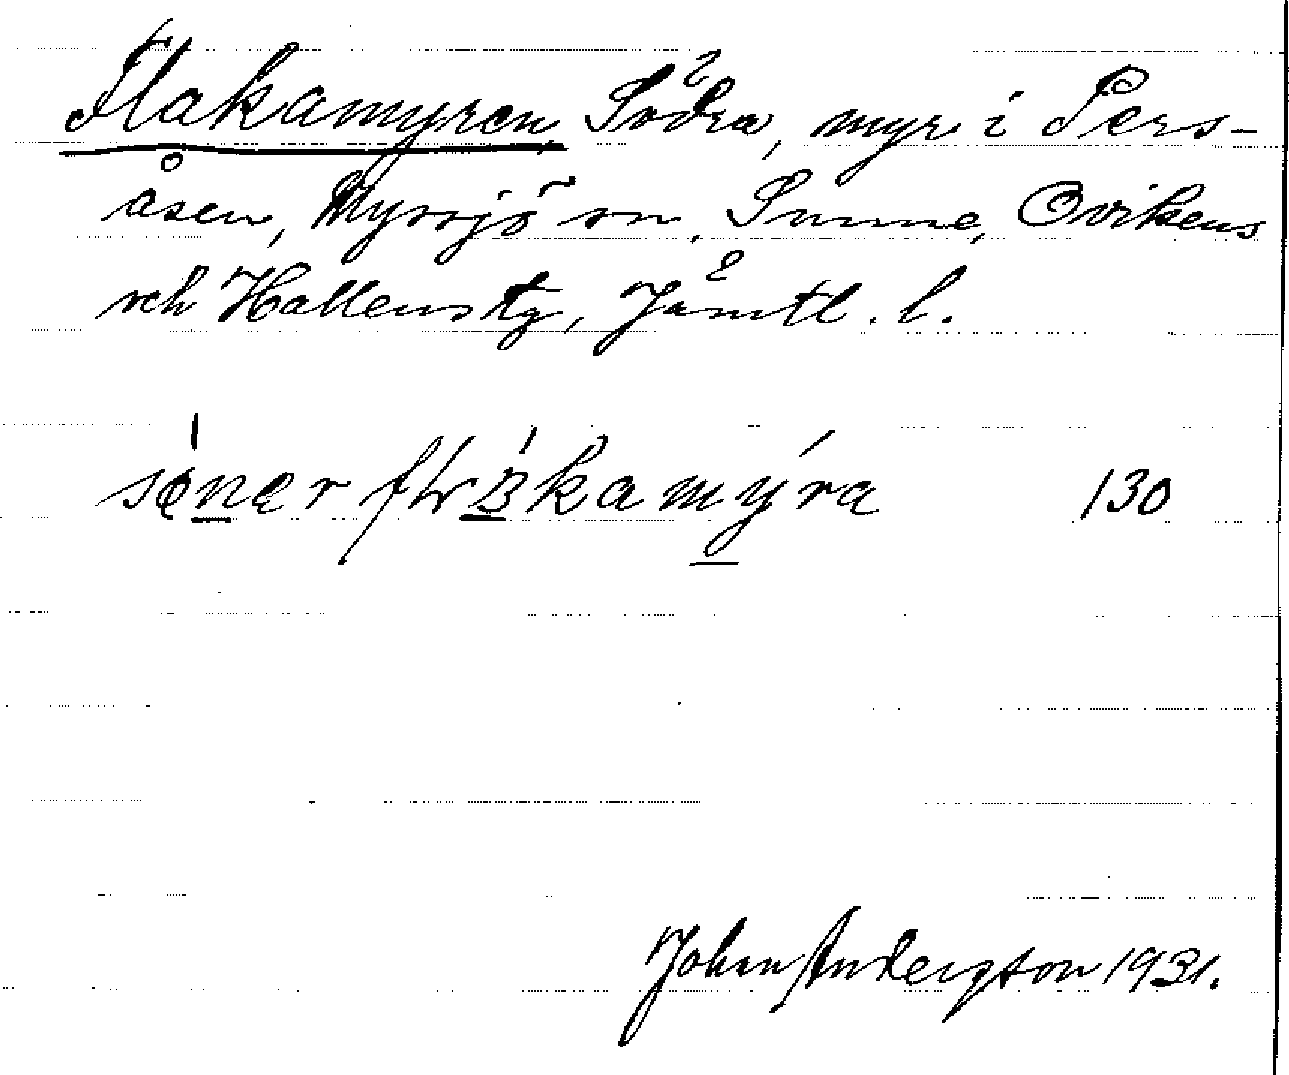 Flakamyren, Södra, myr i Pers-
åsen, Myssjö sn, Sunne, Ovikens
och Hallens tg, Jämtl. l.
130
Johan Andersson 1931.